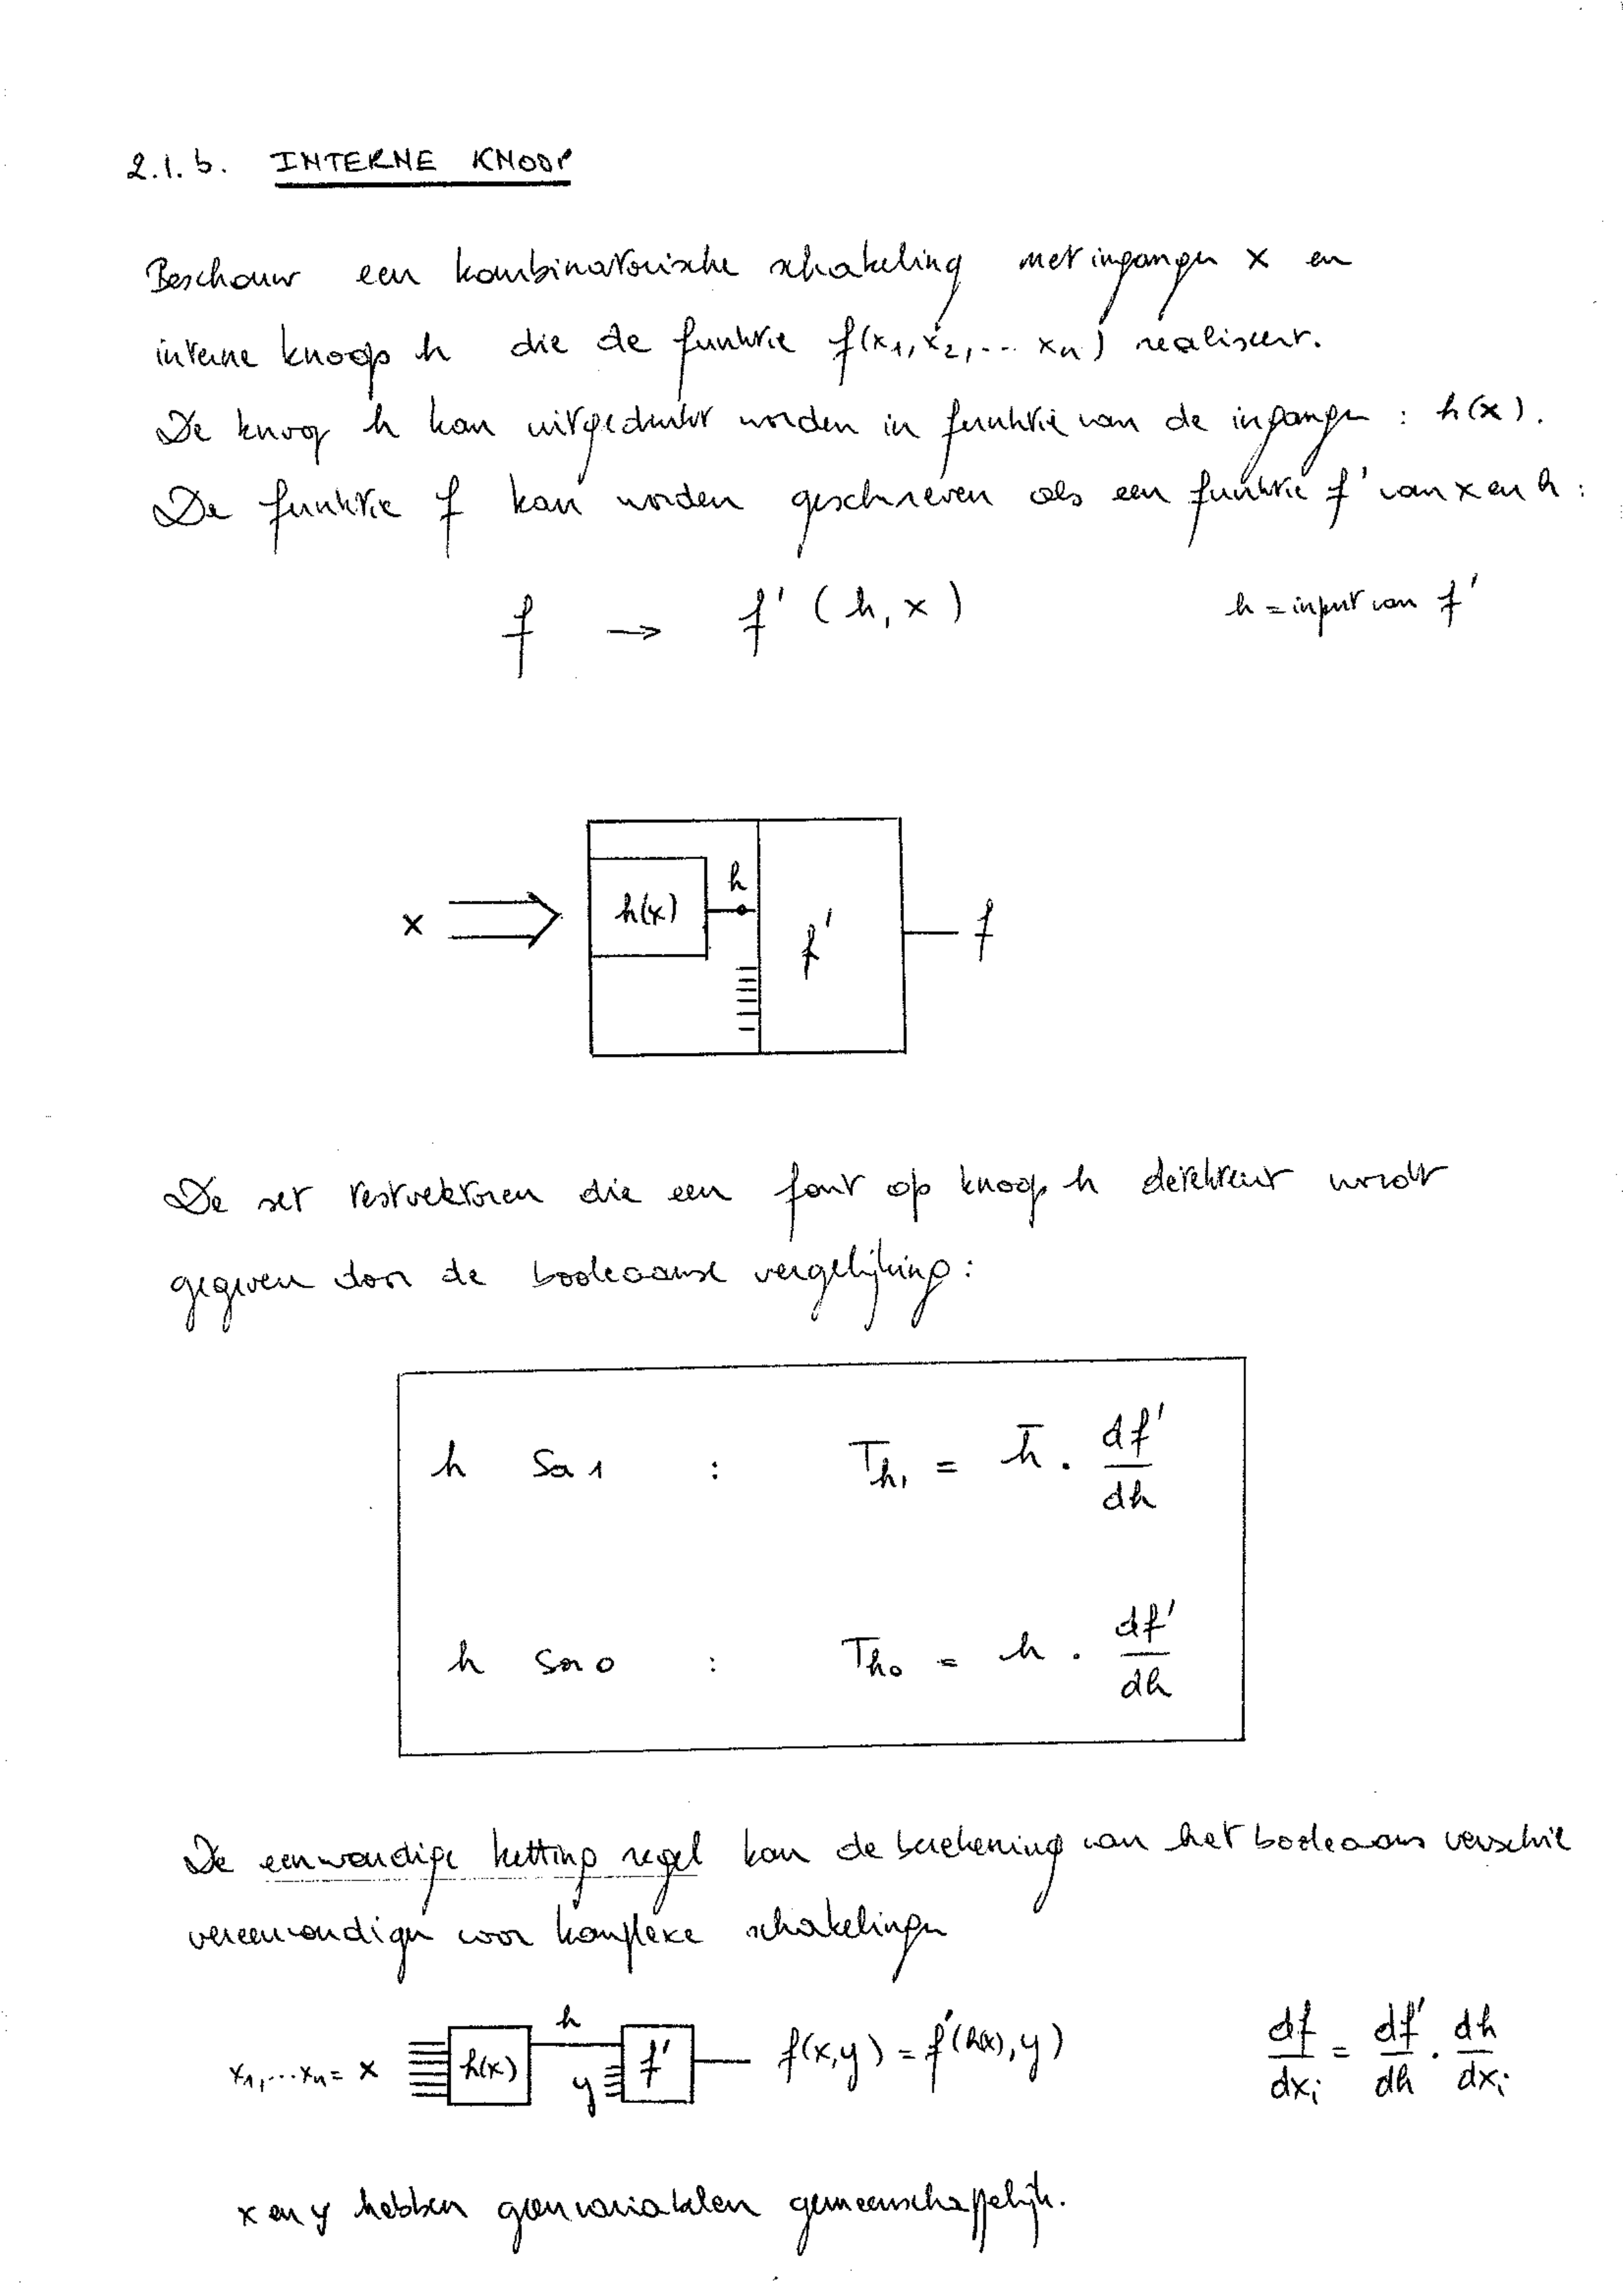 2.1.b. INTERNE KNOOP
Beschouw een kombinatorische schakeling met ingangen x en
interne knoop h die de funktie f(x₁, x₂, ... xₙ) realiseert.
De knoop h kan uitgedrukt worden in funktie van de ingangen : h(x).
De funktie f kan worden geschreven als een funktie f' van x en h :
f → f' (h, x) h = input van f'
h
x h(x) f' f
De set testvektoren die een fout op knoop h detekteert wordt
gegeven door de booleaanse vergelijking:
h Sa1 : Th₁ = h̄ . df'/dh
h Sa0 : Th₀ = h . df'/dh
De eenvoudige ketting regel kan de berekening van het booleaans verschil
vereenvoudigen voor komplexe schakelingen
x₁, ... xₙ = x h(x) h y f' f(x,y) = f'(h(x), y) df/dxᵢ = df'/dh . dh/dxᵢ
x en y hebben geen variabelen gemeenschappelijk.